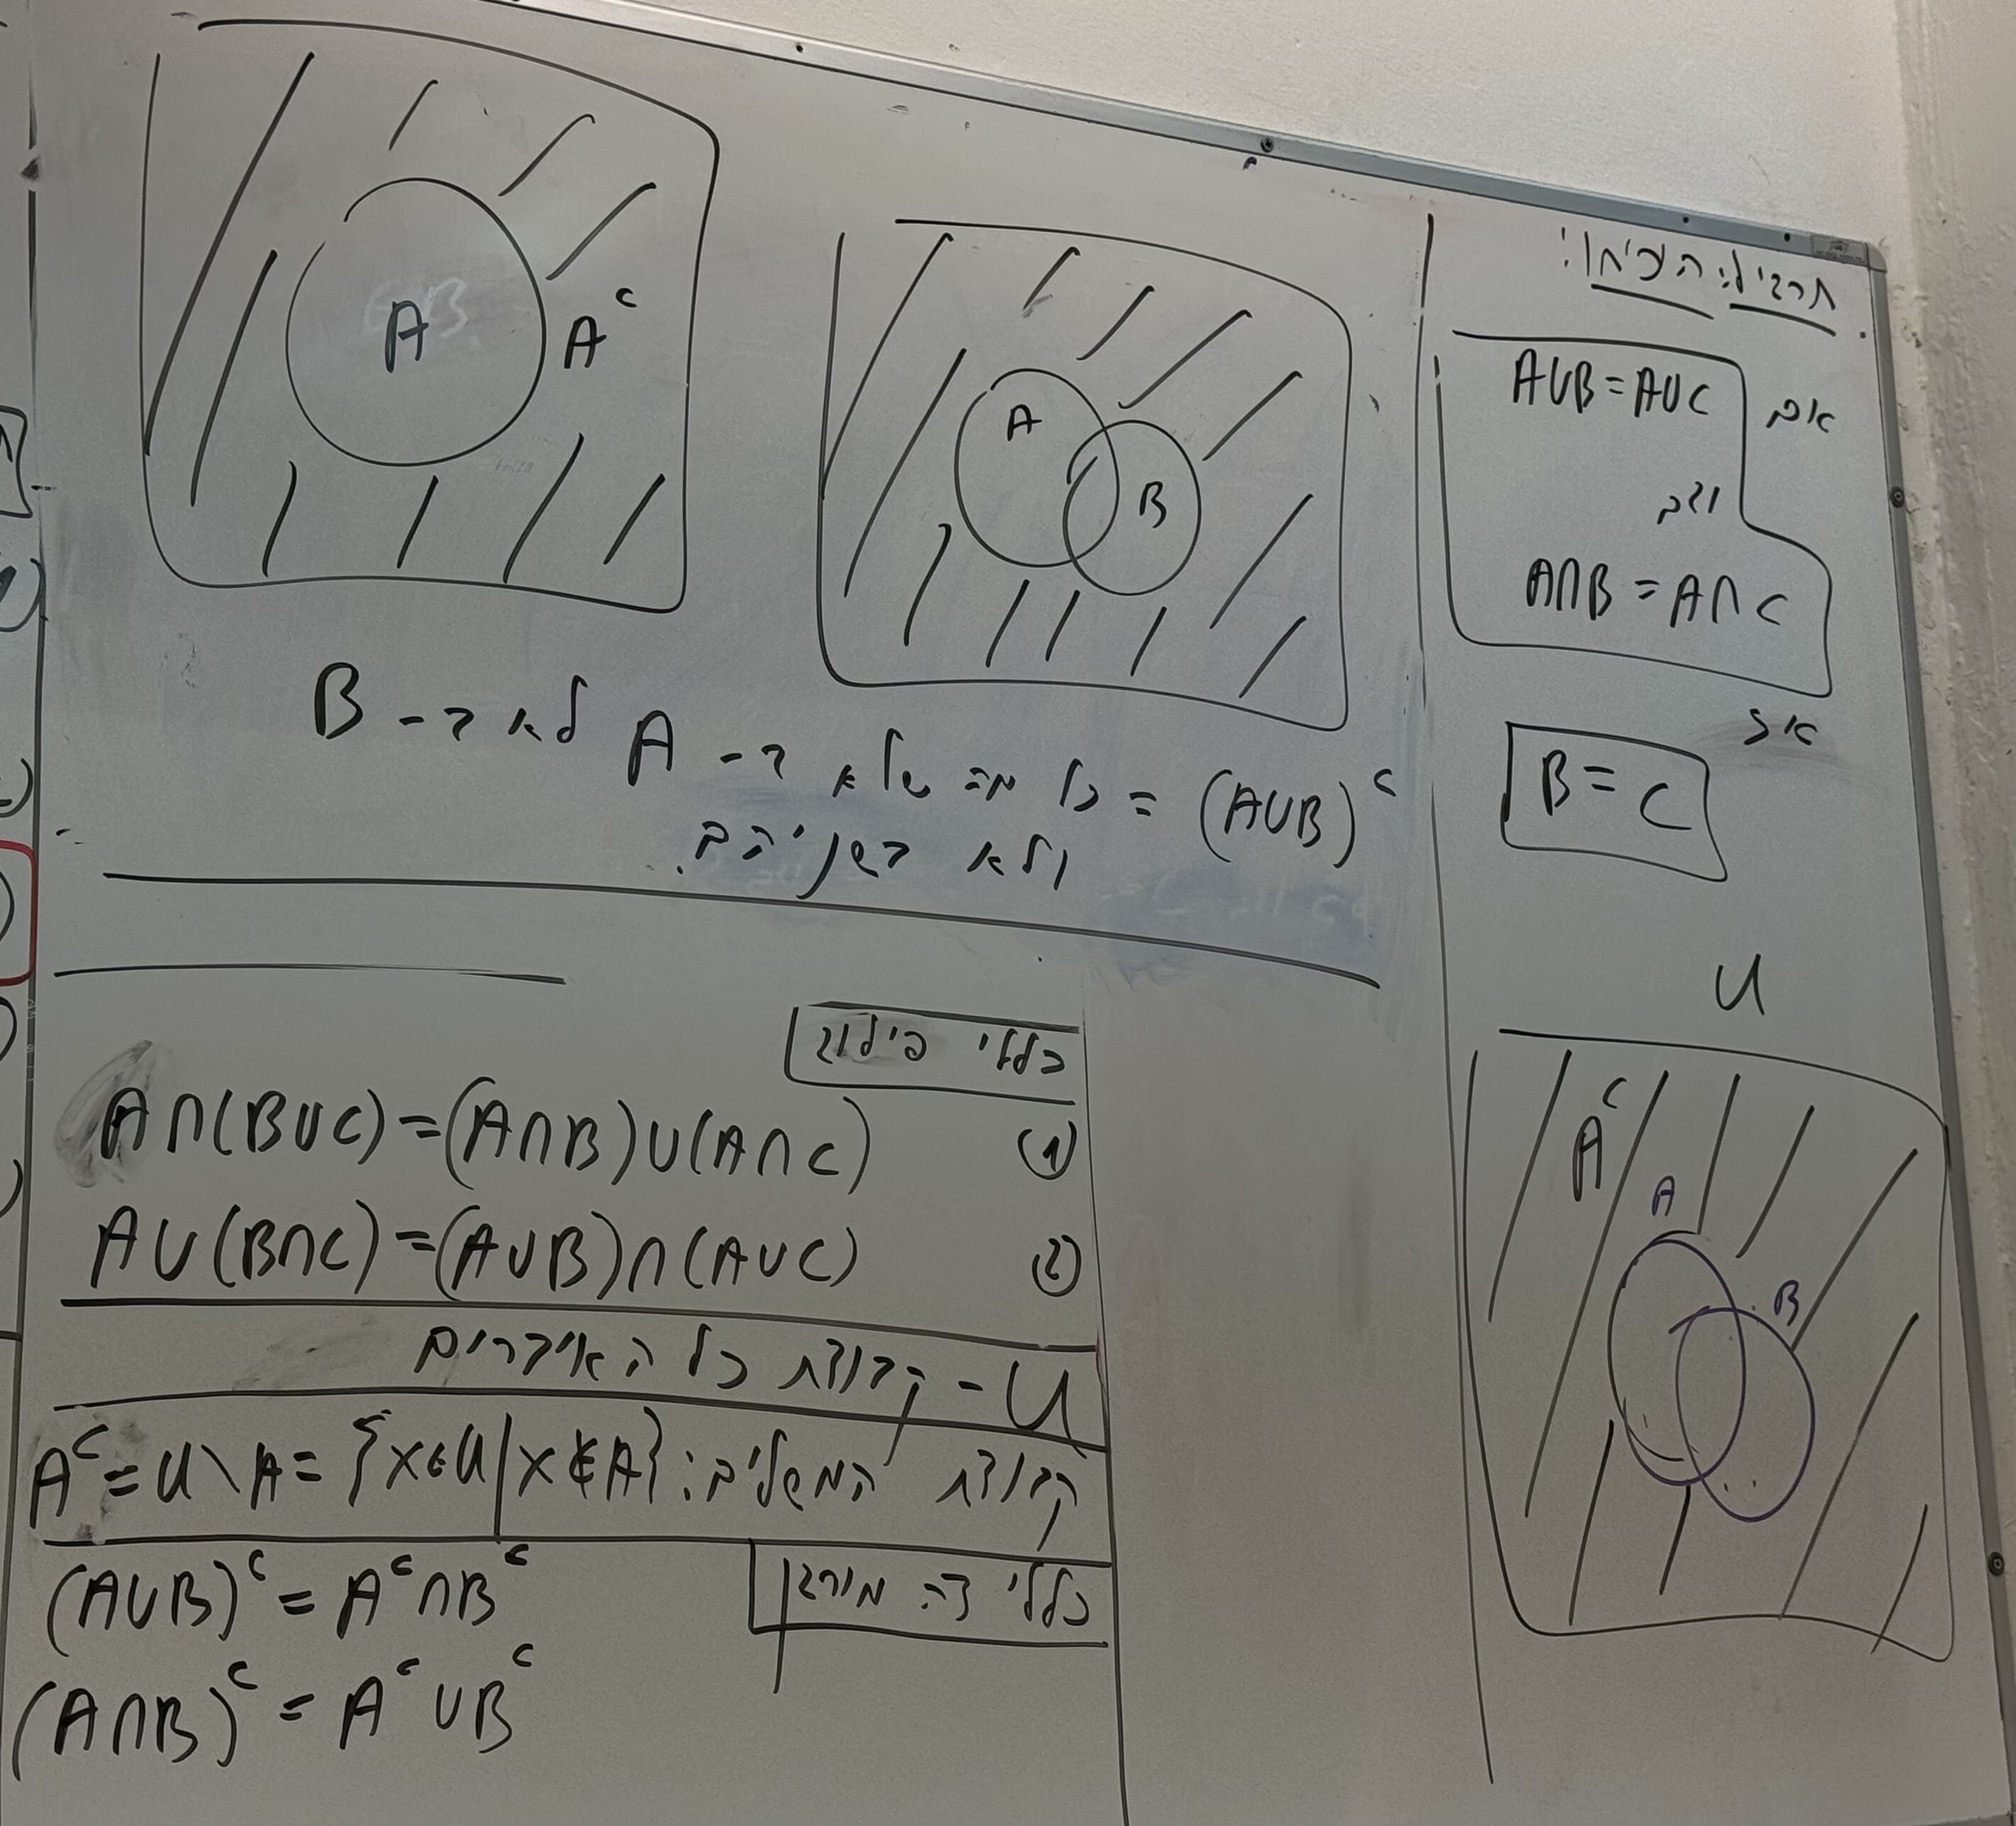 תרגיל: הוכיחו:
אם A∪B = A∪C
וגם
A∩B = A∩C
אז
B = C
U
A^C
A
B
A
A^C
A
B
(A∪B)^C = כל מה שלא ב- A לא ב- B
ולא בשניהם.
כללי פילוג
(1) A∩(B∪C) = (A∩B)∪(A∩C)
(2) A∪(B∩C) = (A∪B)∩(A∪C)
U - קבוצת כל האיברים
קבוצת המשלים: A^C = U \ A = {x∈U | x∉A}
כללי דה מורגן
(A∪B)^C = A^C ∩ B^C
(A∩B)^C = A^C ∪ B^C